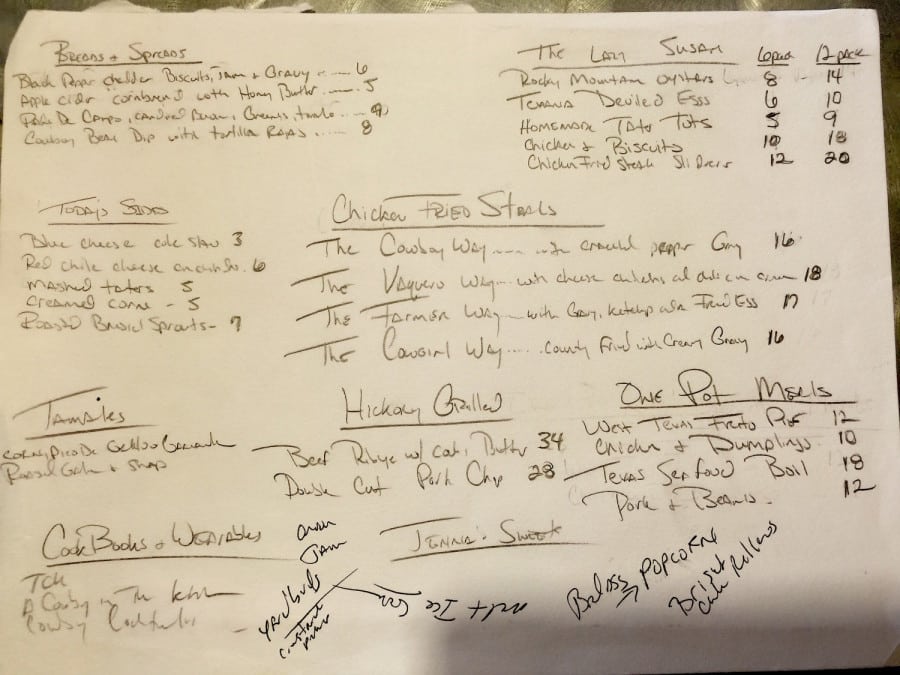 Breads & Spreads
Black Pepper cheddar Biscuits, Jam & Gravy ..... 6
Apple Cider cornbread with Honey Butter ..... 5
Pan De Campo, candied
Cowboy Bean Dip with tortilla ..... 8
The Lazy Susan 6 pack 12-pack
Rocky Mountain oysters 8 14
Texana Deviled Eggs 6 10
Homemade Tator Tots 5 9
Chicken & Biscuits 10 18
Chicken Fried Steak Sliders 12 20
Today's Sides
Blue cheese cole slaw 3
Red chile cheese enchiladas. 6
Mashed taters 5
Creamed corn - 5
Roasted Brussel Sprouts - 7
Chicken Fried Steaks
The Cowboy Way.... with cracked pepper Gravy 16
The Vaquero Way... with cheese enchiladas 18
The Farmer Way - with Gravy, ketchup Fried Egg 17
The Cowgirl Way..... country Fried with Creamy Gravy 16
Tamales
Hickory Grilled
Beef Ribeye w/ Butter 34
Double Cut Pork Chop 28
One Pot Meals
West Texas Frito Pie 12
Chicken & Dumplings. 10
Texas Seafood Boil 18
Pork & Beans. 12
Cook Books & Wearables
TCK
A Cowboy in The Kitchen
Cowboy Cocktails
Jenna's Sweets
Jam
Yardbirds
Popcorn
Bright